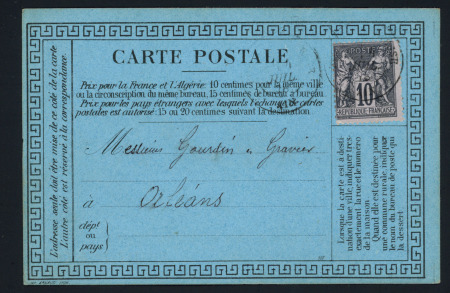 CARTE POSTALE
Prix pour la France et l'Algérie: 10 centimes pour la même ville
ou la circonscription du même bureau, 15 centimes de bureau à bureau
Prix pour les pays étrangers avec lesquels l'échange de cartes
postales est autorisé: 15 ou 20 centimes suivant la destination
POSTES
10
REPUBLIQUE FRANÇAISE
Messieurs Gourdin & Gravier
à Orléans
dépt
ou
pays
L'adresse seule doit être mise de ce côté de la carte
L'autre côté est réservé à la correspondance
Lorsque la carte est à desti-
nation d'une ville, indiquer très-
exactement la rue et le numéro
de la maison.
Quand elle est destinée pour
une commune rurale, indiquer
le nom du bureau de poste qui
la dessert